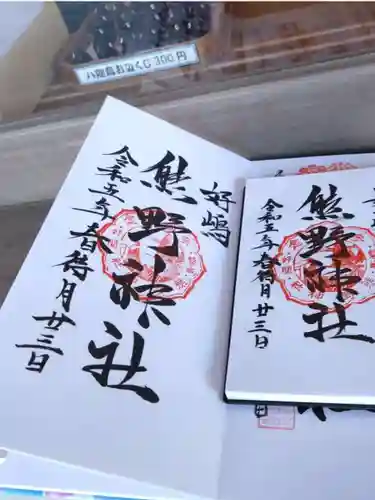 八咫烏おみくじ 300円
好嶋
熊野神社
令和五年 春待月 廿三日
熊野神社
令和五年 春待月 廿三日